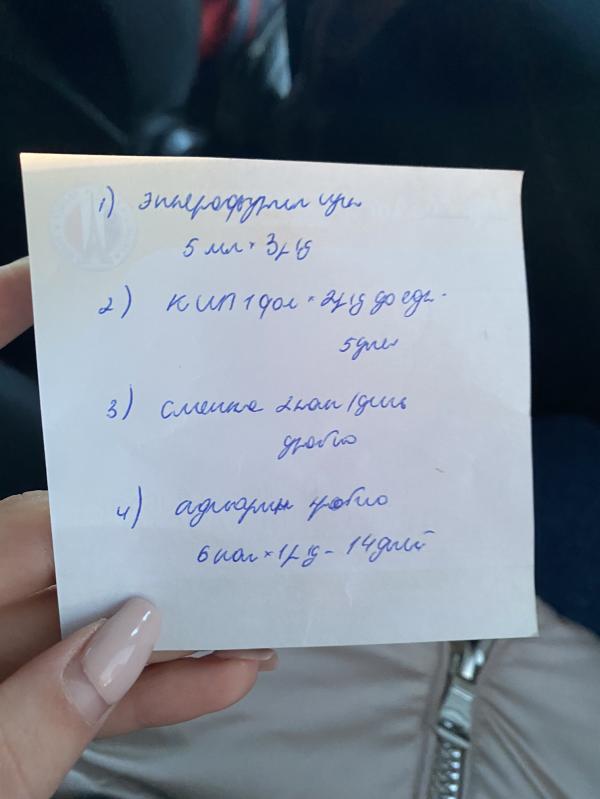 1) Энтерофурил сусп
5 мл × 3р/д
2) КИП 1 фл × 2р/д до еды
5 дней
3) смекта 2 пак/день
дробно
4) адиарин пробио
6 кап × 1р/д - 14 дней